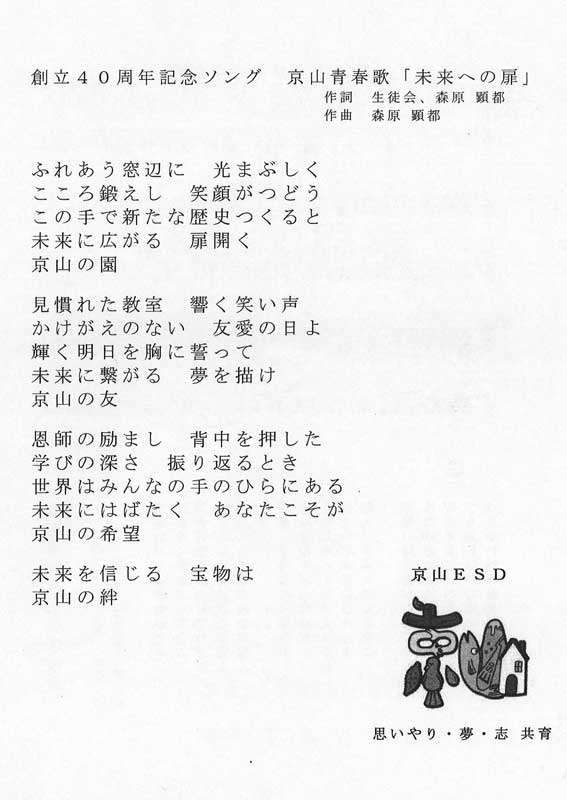 創立４０周年記念ソング　京山青春歌「未来への扉」
作詞　生徒会、森原 顕都
作曲　森原 顕都
ふれあう窓辺に　光まぶしく
こころ鍛えし　笑顔がつどう
この手で新たな歴史つくると
未来に広がる　扉開く
京山の園
見慣れた教室　響く笑い声
かけがえのない　友愛の日よ
輝く明日を胸に誓って
未来に繋がる　夢を描け
京山の友
恩師の励まし　背中を押した
学びの深さ　振り返るとき
世界はみんなの手のひらにある
未来にはばたく　あなたこそが
京山の希望
未来を信じる　宝物は
京山の絆
京山ＥＳＤ
思いやり・夢・志 共育